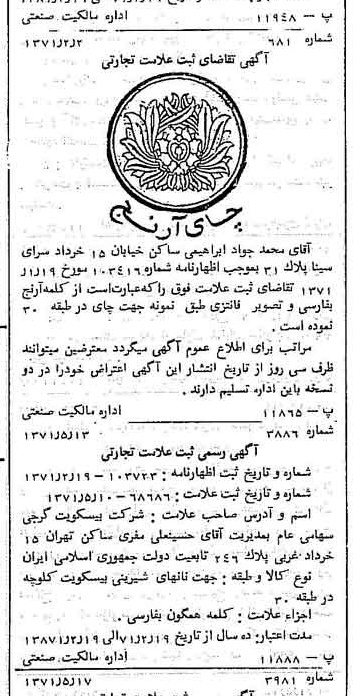 پ — ۱۱۹۴۸ اداره مالکیت صنعتی
شماره ۶۸۱ ۱۳۷۱/۲/۲
آگهی تقاضای ثبت علامت تجارتی
چای آرنج
آقای محمد جواد ابراهیمی ساکن خیابان ۱۵ خرداد سرای
سینا پلاک ۳۱ بموجب اظهارنامه شماره ۱۰۳۴۱۶ مورخ ۱۹/۱/
۱۳۷۱ تقاضای ثبت علامت فوق را که عبارت است از کلمه آرنج
بفارسی و تصویر فانتزی طبق نمونه جهت چای در طبقه ۳۰
نموده است .
مراتب برای اطلاع عموم آگهی میگردد معترضین میتوانند
ظرف سی روز از تاریخ انتشار این آگهی اعتراض خود را در دو
نسخه باین اداره تسلیم دارند .
پ — ۱۱۸۶۵ اداره مالکیت صنعتی
شماره ۳۸۸۶ ۱۳۷۱/۵/۱۳
آگهی رسمی ثبت علامت تجارتی
شماره و تاریخ ثبت اظهارنامه : ۱۰۳۷۲۳ — ۱۳۷۱/۲/۱۹
شماره و تاریخ ثبت علامت : ۶۸۶۸۶ — ۱۳۷۱/۵/۱۰
اسم و آدرس صاحب علامت : شرکت بیسکویت گرجی
سهامی عام بمدیریت آقای حسینعلی مفری ساکن تهران ۱۵
خرداد غربی پلاک ۲۴۶ تابعیت دولت جمهوری اسلامی ایران
نوع کالا و طبقه : جهت نانهای شیرینی بیسکویت کلوچه
در طبقه ۳۰
اجزاء علامت : کلمه همگون بفارسی .
مدت اعتبار : ده سال از تاریخ ۷۱/۲/۱۹ الی ۱۳۸۷/۲/۱۹
پ — ۱۱۸۸۸ اداره مالکیت صنعتی
شماره ۳۹۸۱ ۱۳۷۱/۵/۱۷